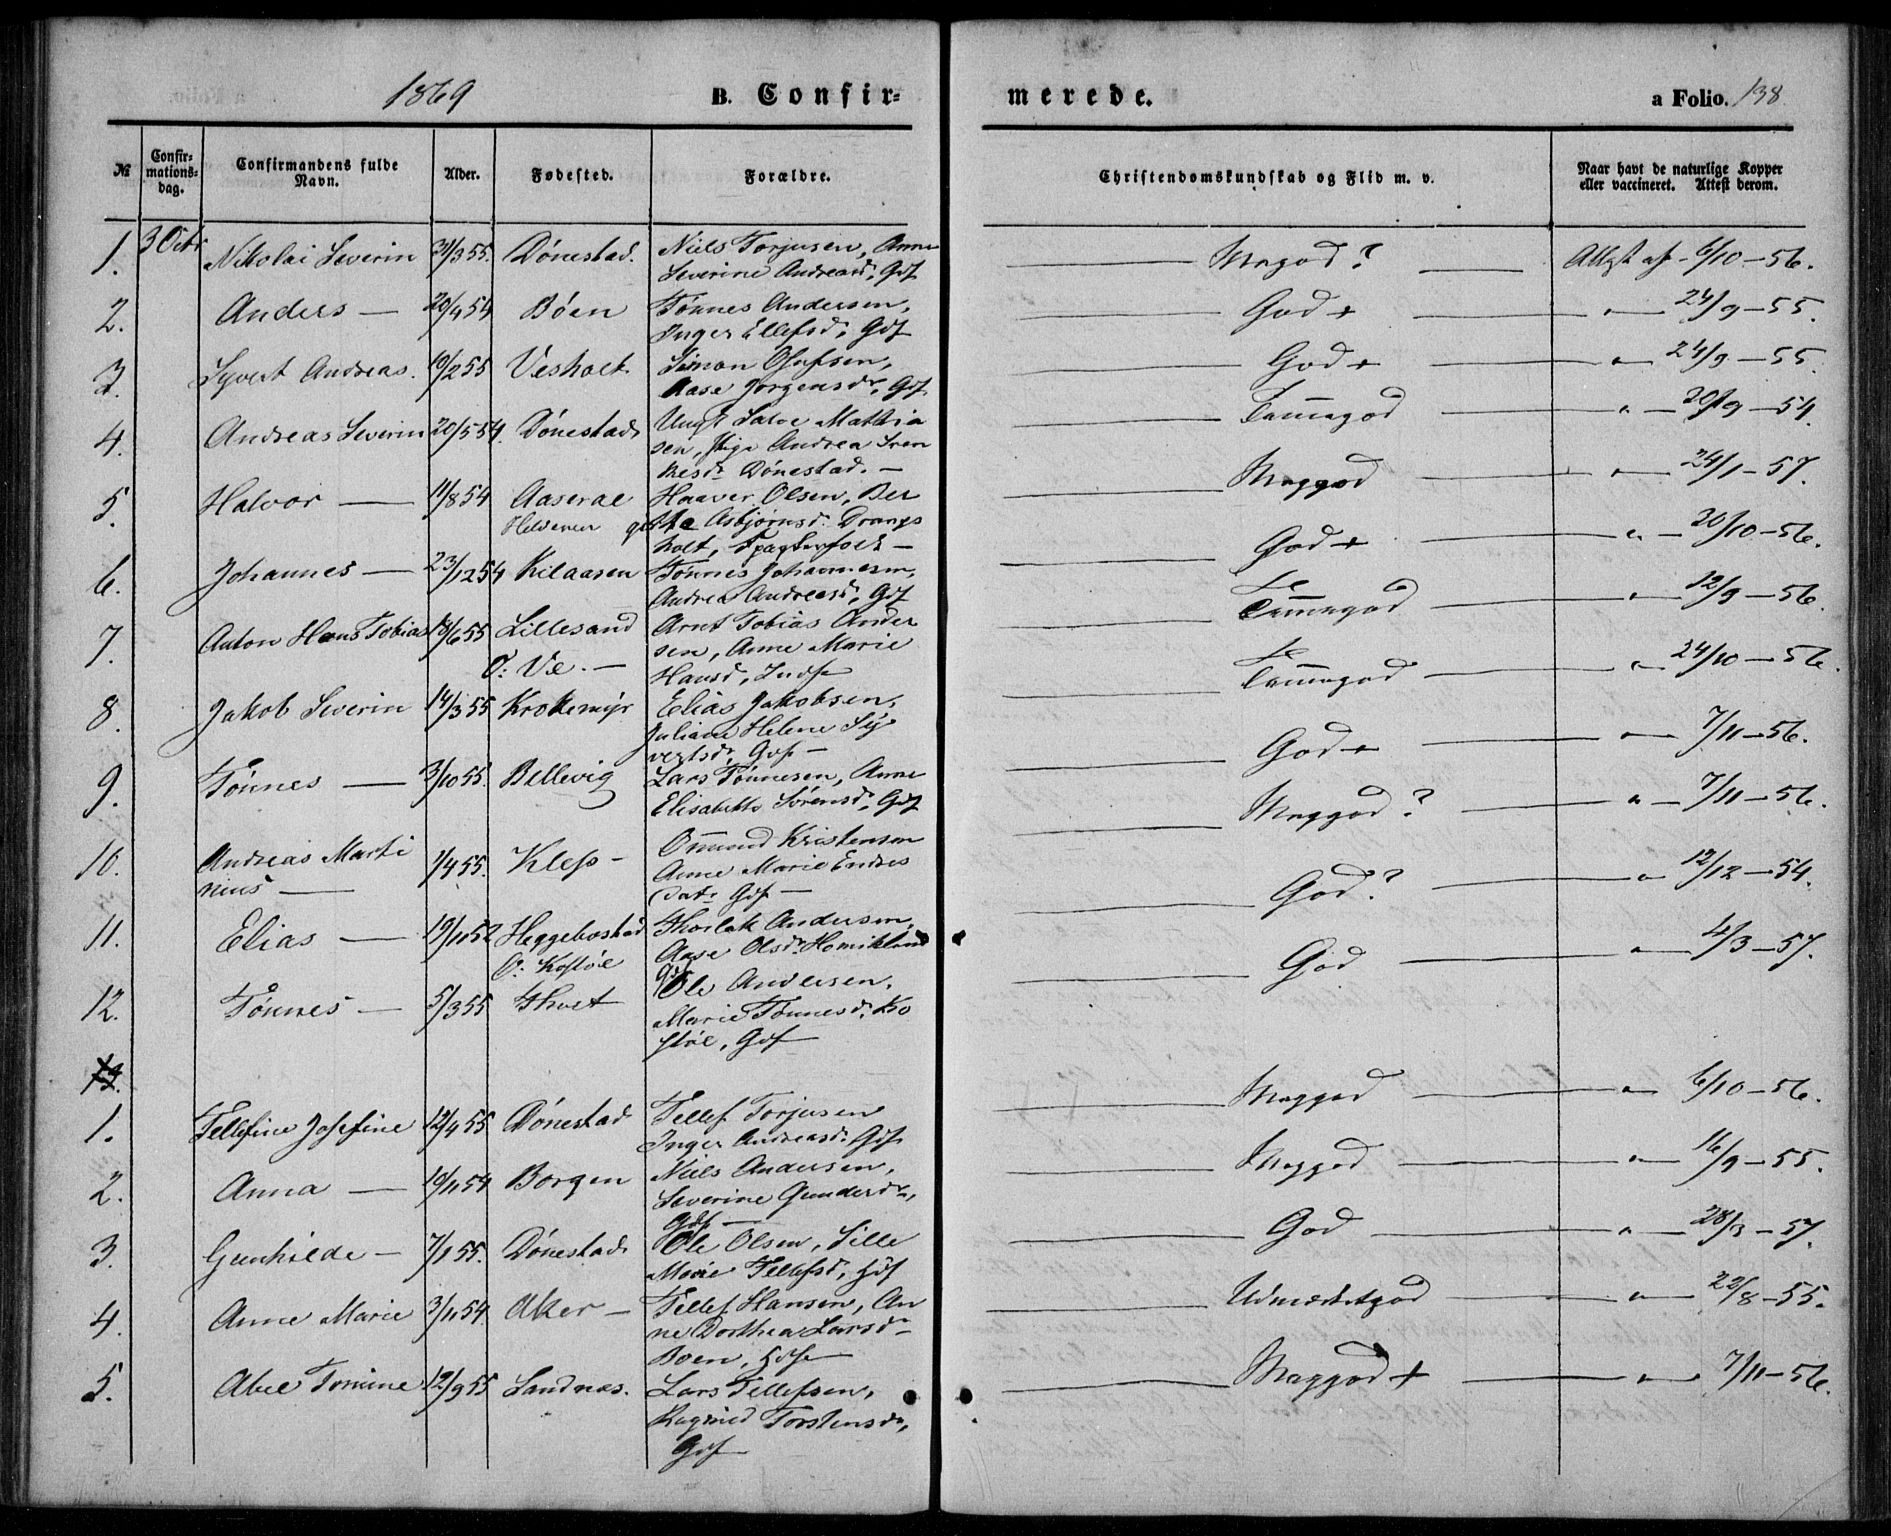 1869 B. Confir= merede. a Folio. 138
№ Confir=mations=dag. Confirmandens fulde Navn. Alder. Fødested. Forældre. Christendomskundskab og Flid m. v. Naar havt de naturlige Kopper eller vaccineret. Attest derom.
1. 3 Octr Nikolai Severin 31/3 55. Dønestad. Niels Torjusen, Anne
Severine Andreasd., Gdf Megod? 6/10 - 56.
2. Anders — 29/4 54 Bøen Tønnes Andersen,
Inger Ellefsd., Gdf God + " — 24/9 - 55.
3. Syvert Andreas. 19/2 55 Vesholt Simon Olufsen,
Aase Jørgensdr., Gdf. God + " — 24/9 - 55.
4. Andreas Severin 20/5 54. Dønestad Ungk Salve Mathia
sen, Pige Andrea Sven
kesdr Dønestad. — Temmegod " — 20/9 - 54.
5. Halvor — 11/8 54 Aaseral Haaver Olsen, Ber
the Asbjørnsd. Drangs
holt, — Meggod " — 24/1 - 57.
6. Johannes — 23/12 54 Kilaasen Tønnes Johannesen,
Andrea Andreasd., Gdf God + " — 20/10 - 56.
7. Anton Hans Tobias 18/6 55 Lillesand
O: Ve. — Arnt Tobias Ander
sen, Anne Marie
Hansd., Indf Temmegod " — 12/9 - 56.
8. Jakob Severin 14/3 55 Krokemyr Elias Jakobsen,
Juliane Helene Sy
vertsd., Gdf — Temmegod " — 24/10 - 56.
9. Tønnes — 3/10 55. Bellevig Lars Tønnesen, Anne
Elisabeth Sørensd., Gdf God + " — 7/11 - 56.
10. Andreas Marti
nius — 1/4 55. Klep — Omund Kristensen
Anne Marie Endres
datr Gdf — Meggod? " — 7/11 - 56.
11. Elias — 19/11 52 Heggebostad
O: Kostøl Thorlak Andersen,
Aase Olsdr Homikland
Gdf God? " — 12/12 - 54.
12. Tønnes — 5/3 55 Thvet Ole Andersen,
Marie Tønnesd. Ko
støl, Gdf God " — 4/3 - 57.
13.
1. Tellefine Josefine 12/4 55 Dønestad Tellef Torjusen
Inger Andreasd. Gdf. Meggod " — 6/10 - 56.
2. Anna — 19/11 54 Borgen Niels Andersen,
Severine Gundersdr,
Gdf — Meggod " — 16/9 - 55.
3. Gunhilde — 7/1 55. Dønestad Ole Olsen, Sille
Marie Tellefsd., Hdf God " — 28/3 - 57.
4. Anne Marie 3/11 54 Aker — Tellef Hansen, An
ne Dorthea Larsdr
Boen, Hdf Udmerketgod " — 22/8 - 55.
5. Abel Tomine 12/9 55 Sandnes. Lars Tellefsen,
Ragnild Torstensdr,
Gdf Meggod + " — 7/11 - 56.